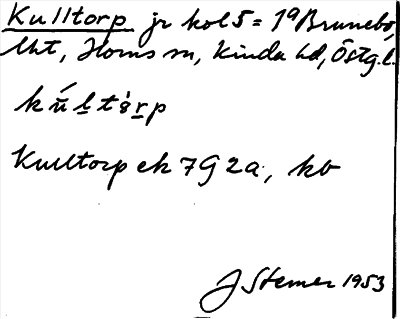 Kulltorp jr kol 5 = 1ª Brunebo,
Uht, Horns sn, Kinda hd, Östg.l.
kúltòrp
Kulltorp ek 7G2a, kb
J Stemer 1953